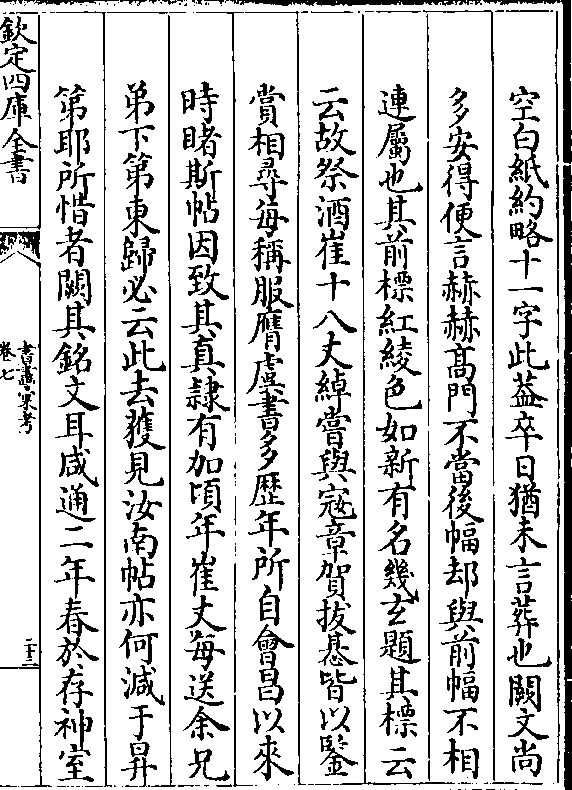 空白紙約略十一字此葢卒日猶未言葬也闕文尚
多安得便言赫赫髙門不當後幅却與前幅不相
連屬也其前標紅綾色如新有名幾玄題其標云
云故祭酒崔十八丈綽嘗與宼章賀拔惎皆以鑒
賞相尋每稱服膺虞書多歴年所自會昌以來
時睹斯帖因致其真隷有加頃年崔丈每送余兄
弟下第東歸必云此去獲見汝南帖亦何減于昇
第耶所惜者闕其銘文耳咸通二年春於存神室
欽定四庫全書
書畫彚考
卷七
二十三